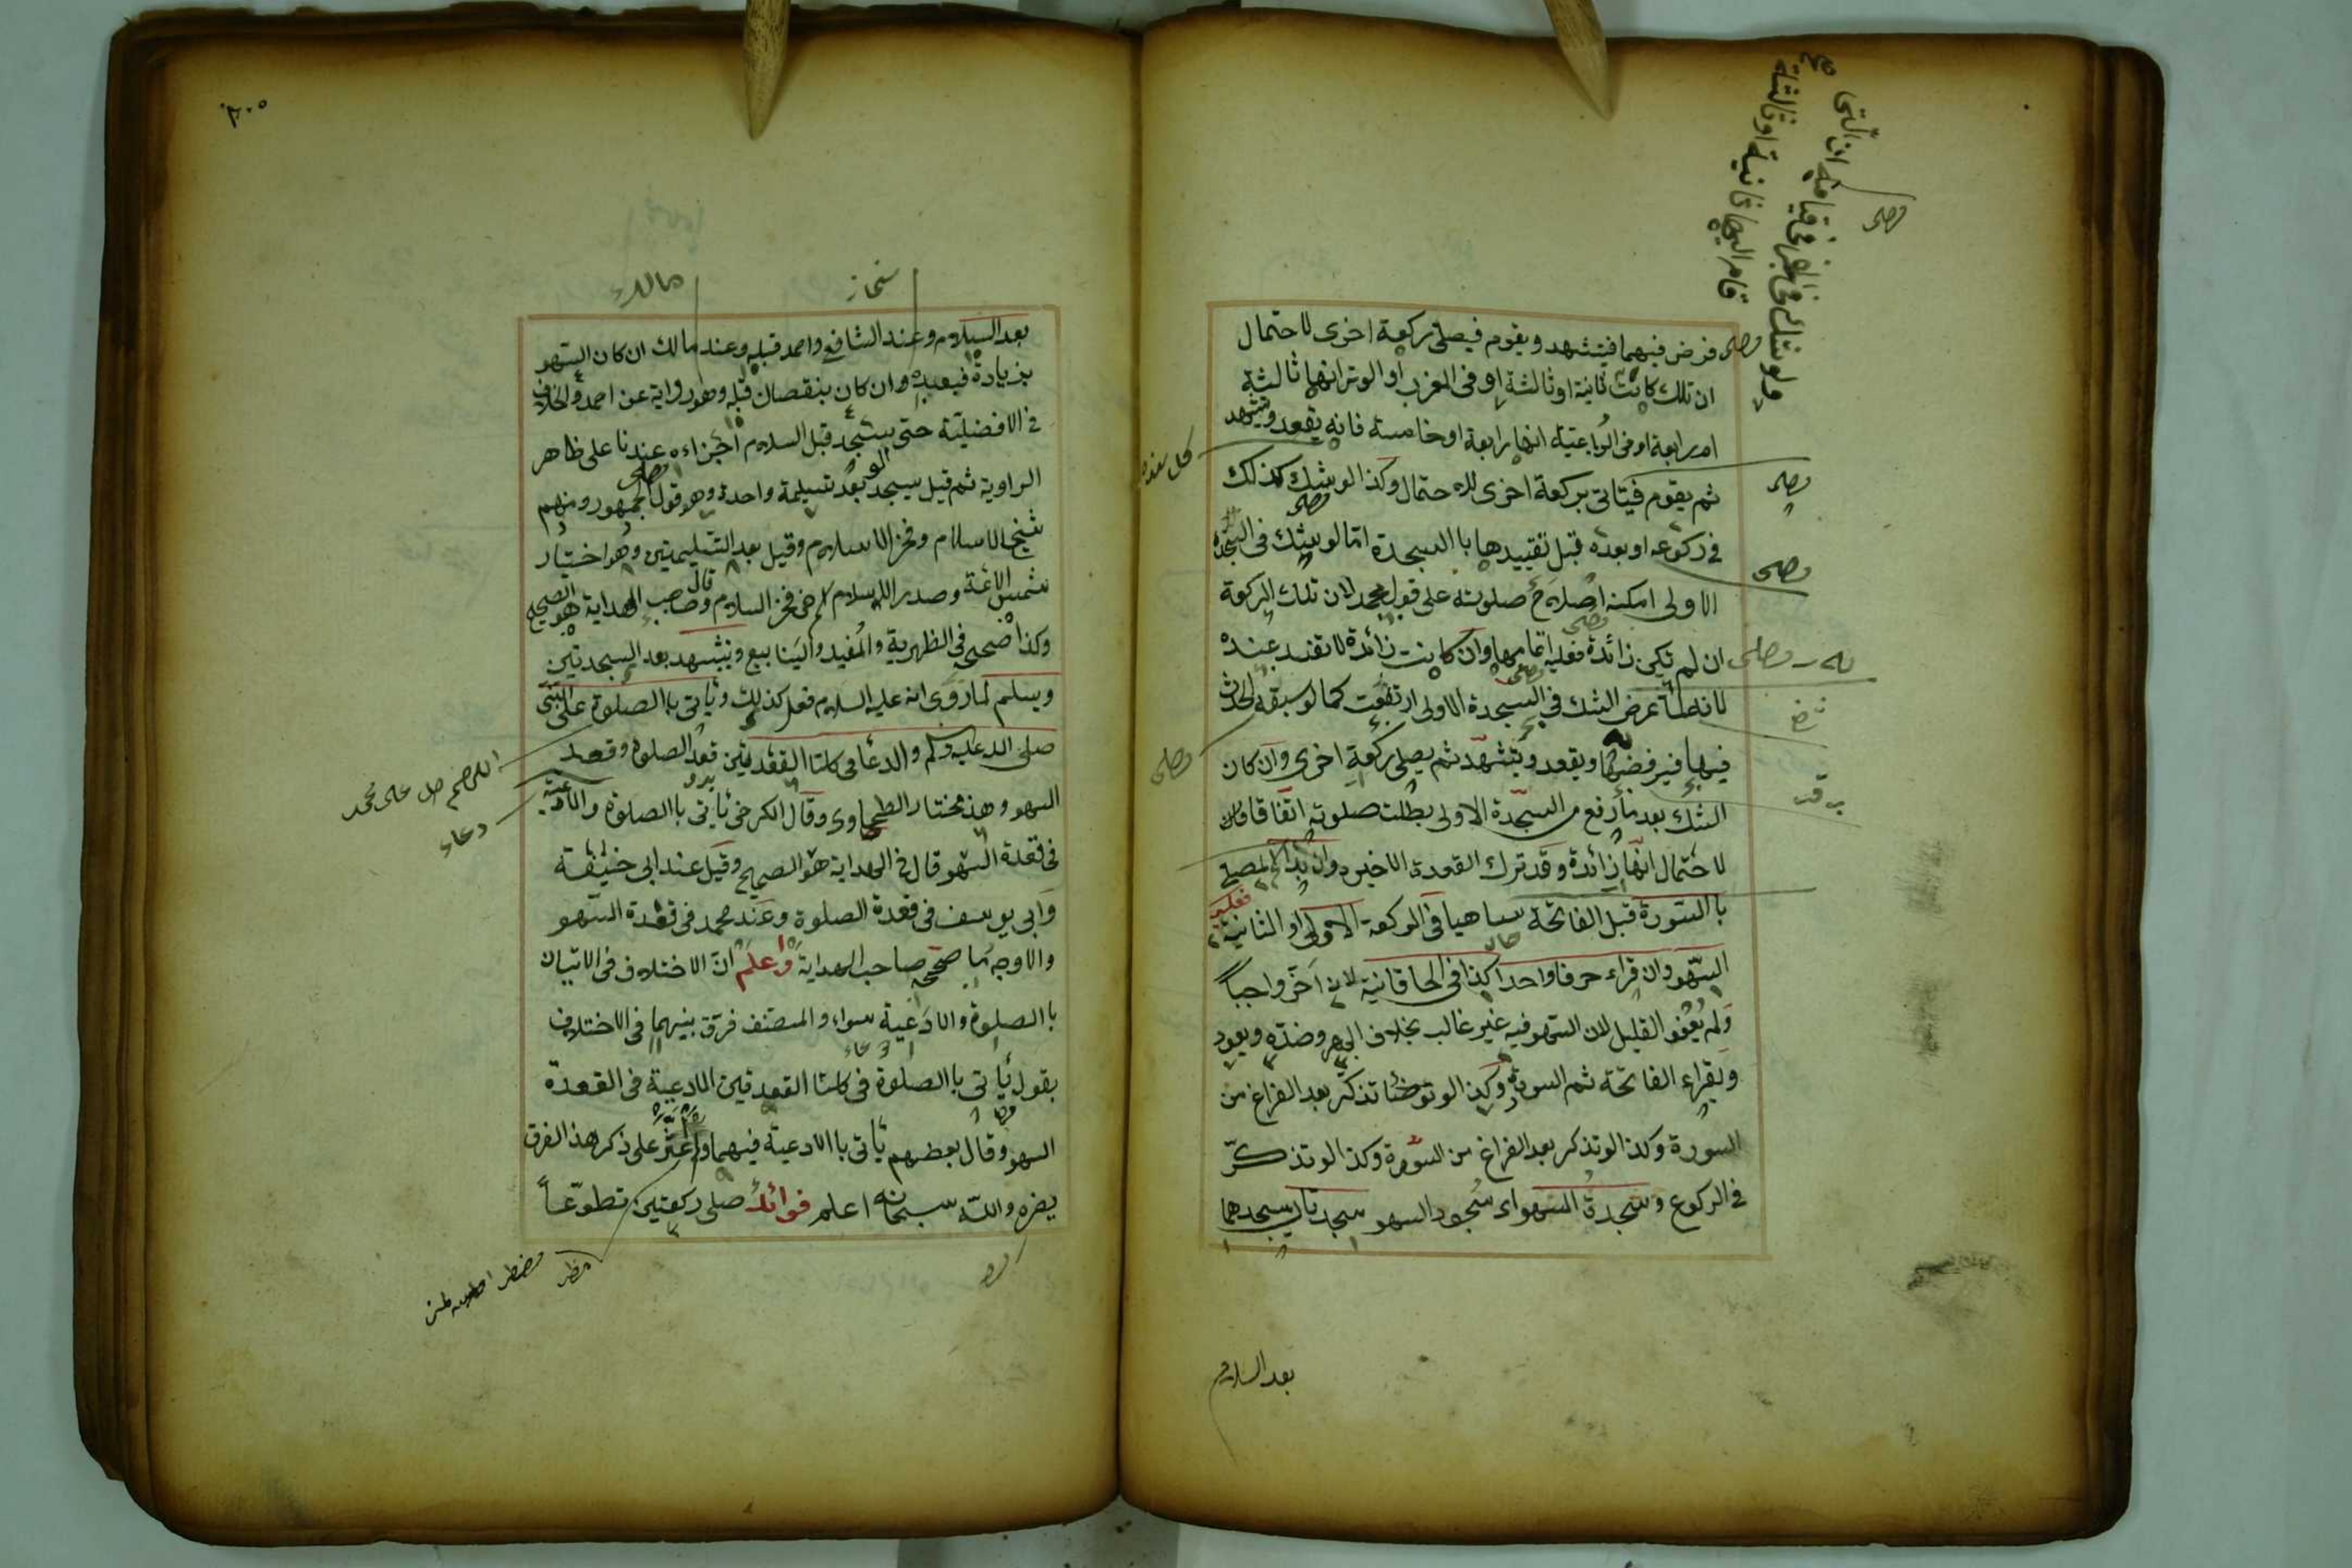 فرض فيهما فيتشهد ويقوم فيصلى ركعة اخرى لاحتمال
ان تلك كانت ثانية او ثالثة او فى المغرب او الوتر انها ثالثة
او رابعة او فى الرباعية انها رابعة او خامسة فانه يقعد ويتشهد
ثم يقوم فيأتى بركعة اخرى للاحتمال وكذا لو شك كذلك
فى ركوعه او بعده قبل تقييدها باالسجدة امّا لو شك فى السجدة
الاولى امكنه اصلاح صلوته على قول محمد لان تلك الركعة
ان لم تكن زائدة فعليه اتمامها وان كانت زائدة لا تفسد عنده
لانه لمّا عرض الشك فى السجدة الاولى ارتفعت كما لو سبقه الحدث
فيها فيرفضها ويقعد ويتشهّد ثم يصلى ركعة اخرى وان كان
الشك بعد ما رفع من السجدة الاولى بطلت صلوته اتفاقا
لاحتمال انّها زائدة وقد ترك القعدة الاخيرة وان بدأ المصلى
باالسورة قبل الفاتحة ساهيا فى الركعة الاولى او الثانية فعليه
السّهو وان قراء حرفا واحدا كذا فى الخاقانية لانه اخّر واجباً
ولم يُعفو القليل لان السّهو فيه غير غالب بخلاف الجهر وضدّه ويعود
ويقراء الفاتحة ثم السورة وكذا لو توضّأ تذكّر بعد الفراغ من
السورة وكذا لو تذكر بعد الفراغ من السّورة وكذا لو تذكّر
فى الركوع وسجدة السهو اى سُجود السهو سجدتان يسجدهما
بعد السلام
٢٠٥
مالك
بعد السلام وعند الشافع واحمد قبله وعند مالك ان كان السّهو
بزيادة فبعده وان كان بنقصان قبله وهو رواية عن احمد والخلاف
فى الافضليّة حتى سجد قبل السلام اجزاءه عندنا على ظاهر
الراوية ثم قيل يسجد بعد تسليمة واحدة وهو قول الجمهور ومنهم
شيخ الاسلام وفخر الاسلام وقيل بعد التسليمتين وهو اختيار
شمس الائمة وصدر الاسلام اخى فخر السلام وقال صاحب الهداية هو الصحيح
وكذا صححه فى الظهرية والمفيد والينابيع ويتشهد بعد السجدتين
ويسلم لما روى انه عليه السلام فعل كذلك ويأتى باالصلوة على النّبىّ
صلى الله عليه وسلم والدعا فى كلتا القعدتين قعد الصلوة وقعد
السهو وهذ مختار الطحاوى وقال الكرخى يأتى باالصلوة والادعية
فى قعدة السّهو قال فى الهداية هو الصحيح وقيل عند ابى حنيفة
وابى يوسف فى قعدة الصلوة وعند محمد فى قعدة السّهو
والاوجه ما صححه صاحب الهداية واعلم انّ الاختلاف فى الاتيان
باالصلوة والادعية سواء والمصنف فرّق بينهما فى الاختلاف
بقول يأتى باالصلوة فى كلتا القعدتين الادعية فى القعدة
السهو وقال بعضهم يأتى باالادعية فيهما ولم اعثر على ذكر هذ الفرق
لغيره والله سبحانه اعلم فوائد صلى ركعتين تطوّعاً
اللهم صل على محمد
دعاء